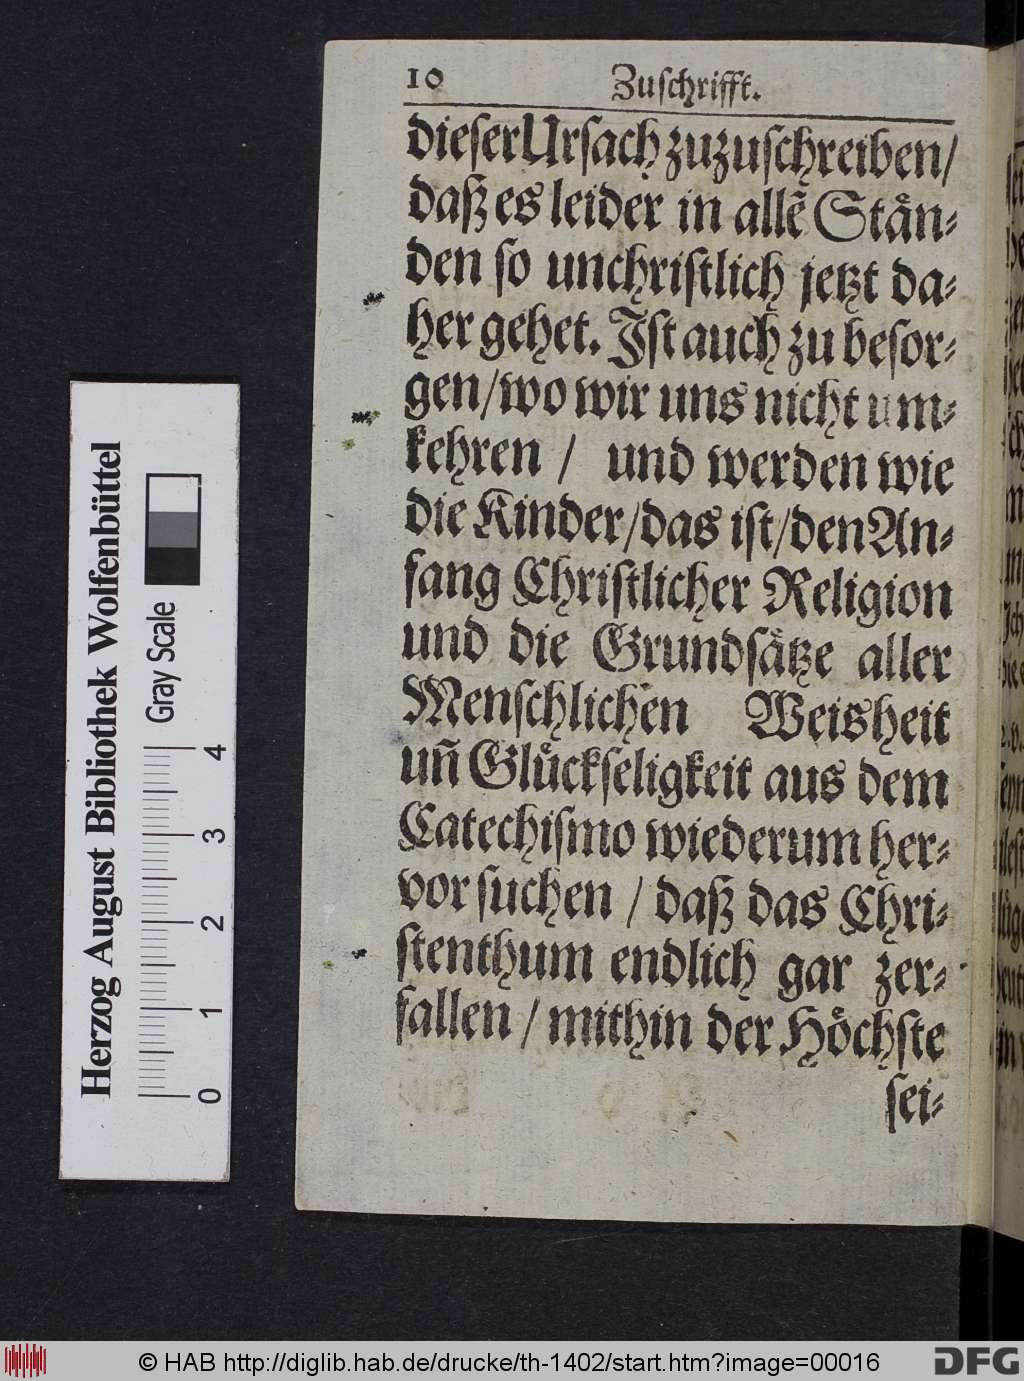 10 Zuschrifft.
dieser Ursach zuzuschreiben/
daß es leider in allẽ Staͤn⸗
den so unchristlich jetzt da⸗
her gehet. Ist auch zu besor⸗
gen/wo wir uns nicht um⸗
kehren / und werden wie
die Kinder/das ist/den An⸗
fang Christlicher Religion
und die Grundsaͤtze aller
Menschlichen Weisheit
uñ Gluͤckseligkeit aus dem
Catechismo wiederum her⸗
vor suchen / daß das Chri⸗
stenthum endlich gar zer⸗
fallen / mithin der Hoͤchste
sei⸗
Herzog August Bibliothek Wolfenbüttel
Gray Scale
0 1 2 3 4
© HAB http://diglib.hab.de/drucke/th-1402/start.htm?image=00016
DFG